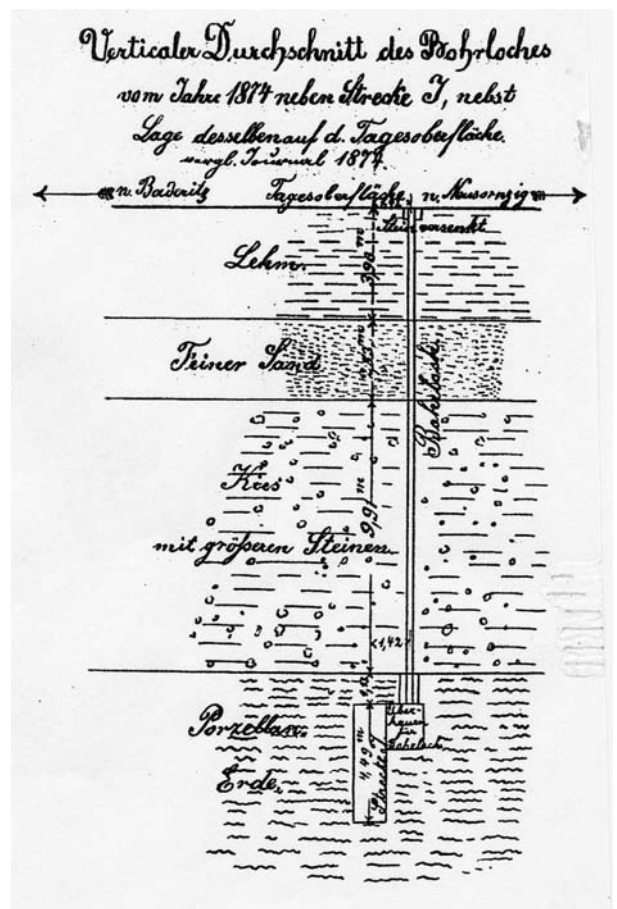 Verticaler Durchschnitt des Bohrloches
vom Jahre 1874 neben Strecke I, nebst
Lage desselben auf d. Tagesoberfläche.
vergl. Journal 1874.
n. Baderitz Tagesoberfläche n. Neusornzig
Stein versenkt
Lehm.
3,90 m
Feiner Sand
m
Bohrloch
Kies
9,91 m
mit größeren Steinen.
1,42
Porzellan
Ueber-
hauen
für
Bohrloch.
4,49 m
Strecke I
Erde.